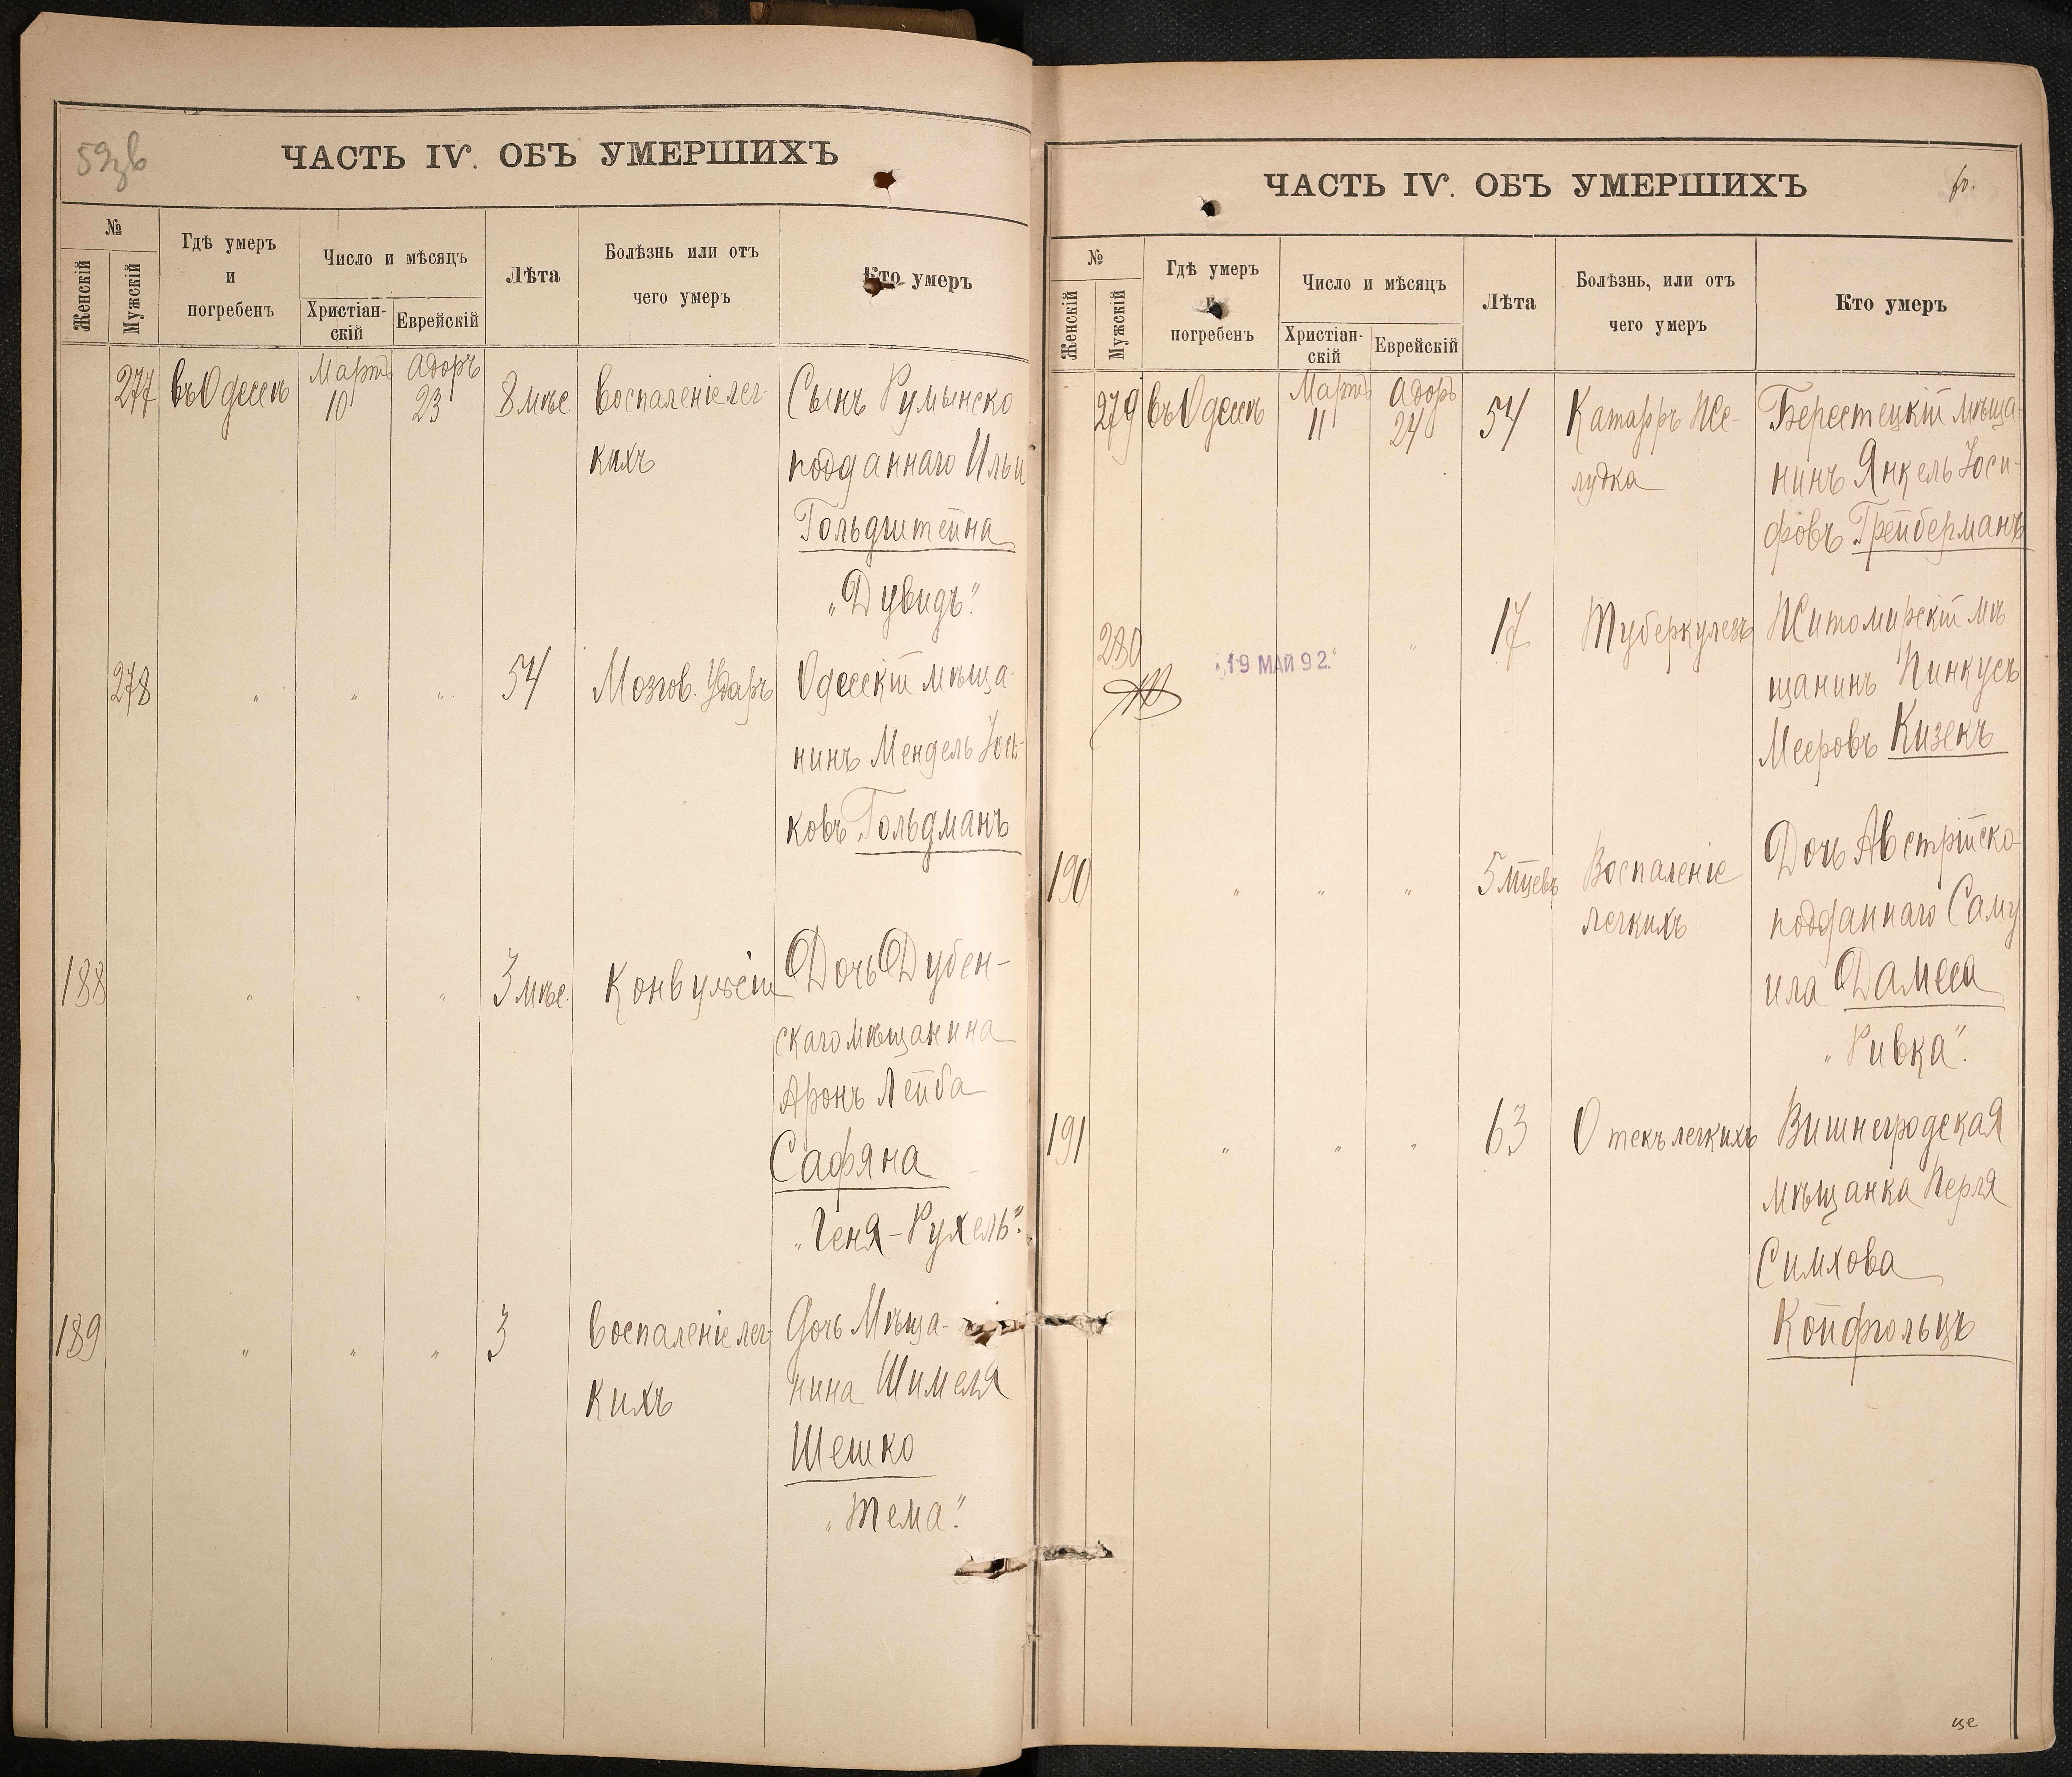 59зв
ЧАСТЬ IV. ОБЪ УМЕРШИХЪ
№
Женскій
Мужскій
Гдѣ умеръ
и
погребенъ
Число и мѣсяцъ
Христіан-
скій
Еврейскій
Лѣта
Болѣзнь или отъ
чего умеръ
Кто умеръ
277 въ Одессѣ Мартъ 10 Адоръ 23 8 мѣс. Воспаленіе лег-
кихъ
Сынъ Румынско
подданнаго Ильи
Гольдштейна
„Дувидъ".
278 " " " 54 Мозгов. Ударъ
Одесскій мѣща-
нинъ Мендель Іось-
ковъ Гольдманъ
188 " " " 3 мѣс. Конвульсіи
Дочь Дубен-
скаго мѣщанина
Аронъ Лейба
Сафяна
„Геня-Рухель".
189 " " " 3 Воспаленіе лег-
кихъ
Дочь Мѣща-
нина Шимеля
Шешко
„Тема".
ЧАСТЬ IV. ОБЪ УМЕРШИХЪ
60.
№
Женскій
Мужскій
Гдѣ умеръ
и
погребенъ
Число и мѣсяцъ
Христіан-
скій
Еврейскій
Лѣта
Болѣзнь, или отъ
чего умеръ
Кто умеръ
279 въ Одессѣ Мартъ 11 Адоръ 24 54 Катарръ Же-
лудка
Берестецкій мѣща-
нинъ Янкель Іоси-
фовъ Грейберманъ
280 19 МАЙ 92. " 17 Туберкулезъ
Житомирскій мѣ
щанинъ Пинкусъ
Мееровъ Кизекъ
190 " " " 5 мцевъ Воспаленіе
легкихъ
Дочь Австрійско-
подданнаго Саму
ила Дамеса
„Ривка".
191 " " " 63 Отекъ легкихъ
Вишнегродская
мѣщанка Перля
Симхова
Койфгольцъ